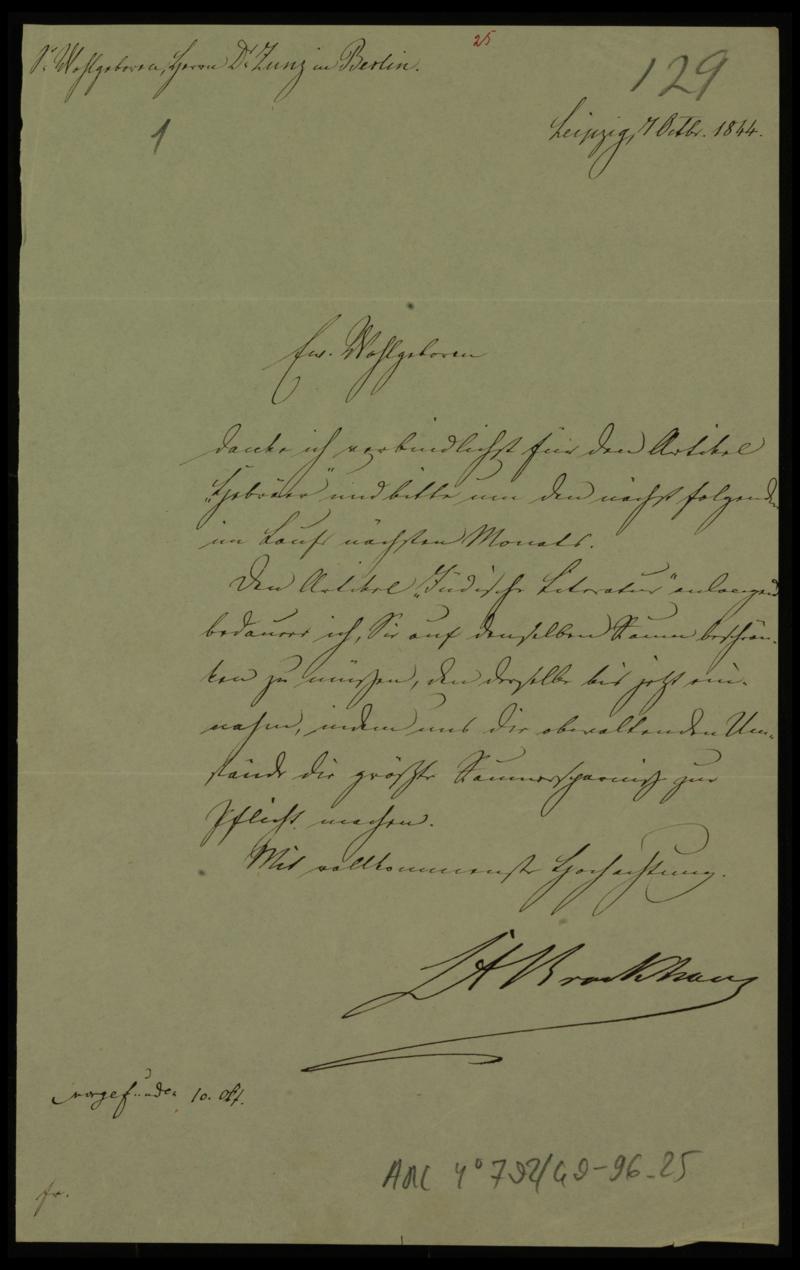 25
Sr. Wohlgeboren, Herrn Dr. Zunz in Berlin.
129
1
Leipzig, 7 Octbr. 1844.
Ew. Wohlgeboren
danke ich verbindlichst für den Artikel
„Hebräer“ und bitte um den nächst folgenden
im Laufe nächsten Monats.
Den Artikel „Jüdische Literatur“ anlangend
bedauere ich, Sie auf denselben Raum beschrän-
ken zu müssen, den derselbe bis jetzt ein-
nahm, indem uns die obwaltenden Um-
stände die größte Raumersparniß zur
Pflicht machen.
Mit vollkommenster Hochachtung.
FA Brockhaus
vorgefunden 10. Okt.
fr.
ARC 4° 792/G9-96-25